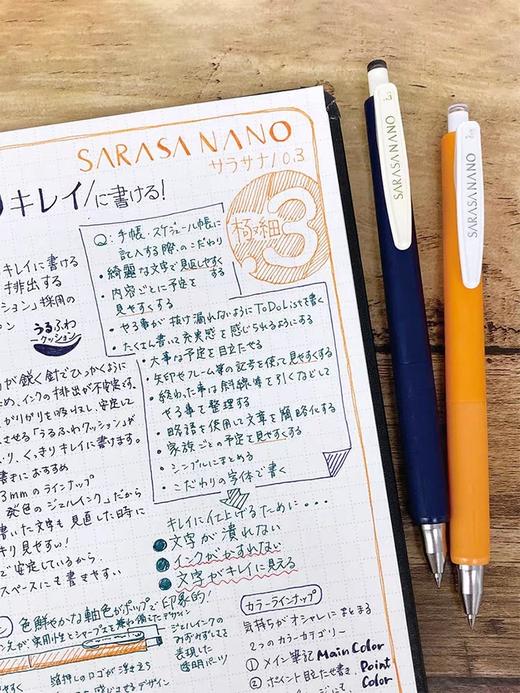 SARASA NANO
サラサナノ 0.3
キレイに書ける!
極細
3
Q:手帳・スケジュール帳に
記入する際のこだわり
・綺麗な文字で見直しやすくする
・内容ごとに予定を
見やすくする
・やる事が抜け漏れないようにToDoListを書く
・たくさん書いて充実感を感じられるようにする
・大事な予定を目立たせる
・矢印やフレーム等の記号を使って見やすくする
・終わった事は斜線等を引くなどして
やる事を整理する
・略語を使用して文章を簡略化する
・家族ごとの予定を見やすくする
・シンプルにまとめる
・こだわりの字体で書く
キレイに仕上げるために・・・
文字が潰れない
インクがかすれない
文字がキレイに見える
キレイに書ける
排出する
ション」採用の
ペン
うるふわ
クッション
が鋭く針でひっかくように
ため、インクの排出が不安定。
ガリガリを吸収し、安定して
させる「うるふわクッション」が
り、くっきりキレイに書けます。
書きにおすすめ
3mmのラインナップ
発色のジェルインク」だから
書いた文字も見直した時に
キリ見やすい!
で安定しているから
スペースにも書きやすい
色鮮やかな軸色がポップで印象的!
ジェルインクの
みずみずしさを
表現した
透明パーツ
カラーラインナップ
気持ちがオシャレにまとまる
2つのカラーカテゴリー
① メイン筆記 Main Color
② ポイント目立たせ書き Point
Color
SARASA NANO
SARASA NANO